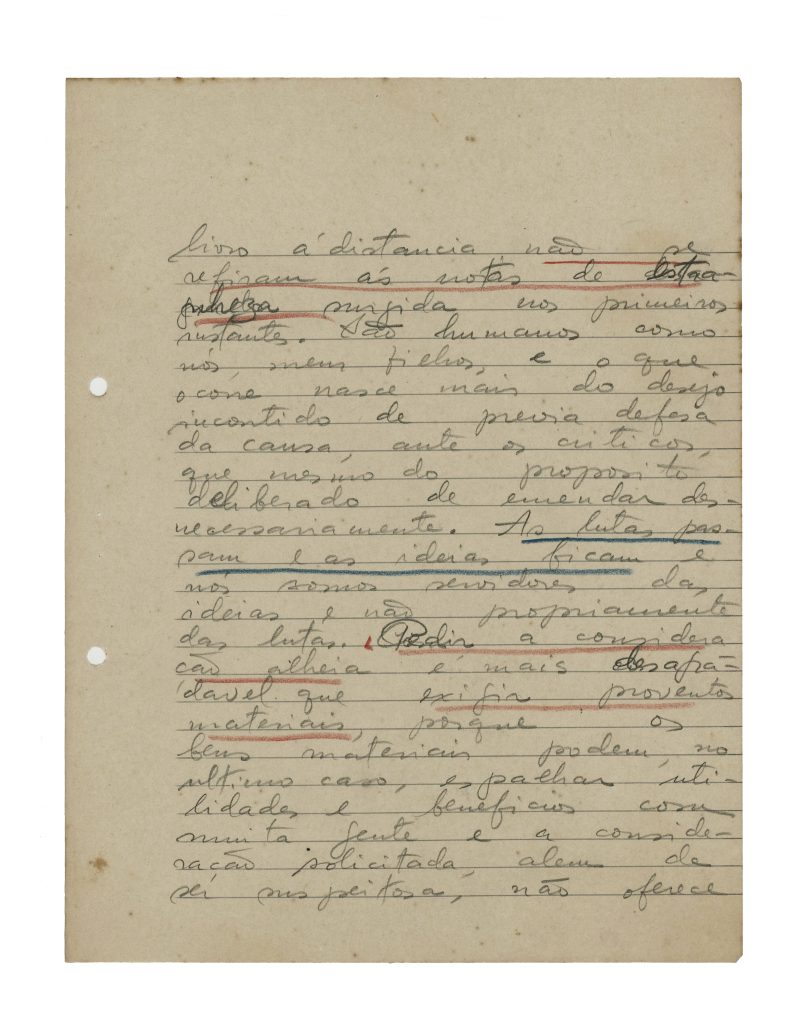 livro á distancia, não se
refiram ás notas de estra-
nheza surgida nos primeiros
instantes. São humanos como
nós, meus filhos, e o que
ocorre nasce mais do desejo
incontido de previa defesa
da causa, ante os criticos,
que mesmo do proposito
deliberado de emendar des-
necessariamente. As lutas pas-
sam e as ideias ficam e
nós somos servidores das
ideias e não propriamente
das lutas. Pedir a considera
ção alheia é mais desagra-
davel que exigir proventos
materiais, porque os
bens materiais podem, no
ultimo caso, espalhar uti-
lidades e beneficios com
muita gente e a conside-
ração solicitada, alem de
ser suspeitosa, não oferece